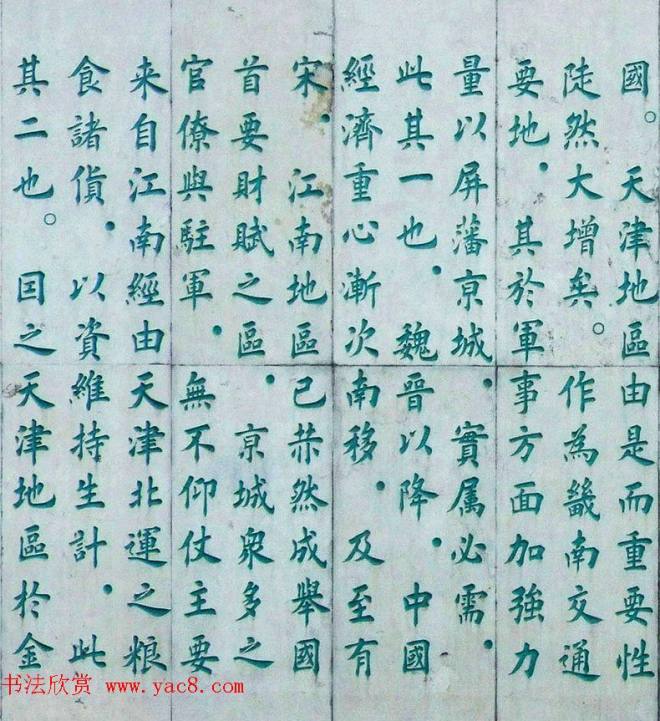 國。天津地區由是而重要性
陡然大增矣。作為畿南交通
要地．其於軍事方面加強力
量以屏藩亰城．實属必需．
此其一也．魏晉以降．中國
經濟重心漸次南移．及至有
宋．江南地區已然成舉國
首要財賦之區．亰城衆多之
官僚與駐軍．無不仰仗主要
来自江南經由天津北運之粮
食諸貨．以資維持生計．此
其二也。囙之天津地區扵金
书法欣赏 www.yac8.com